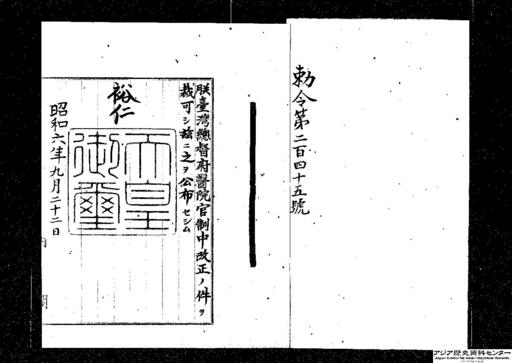 勅令第二百四十五號
朕臺灣總督府醫院官制中改正ノ件ヲ
裁可シ玆ニ之ヲ公布セシム
裕仁
天皇
御璽
昭和六年九月二十二日
内閣
アジア歴史資料センター
Japan Center for Asian Historical Records